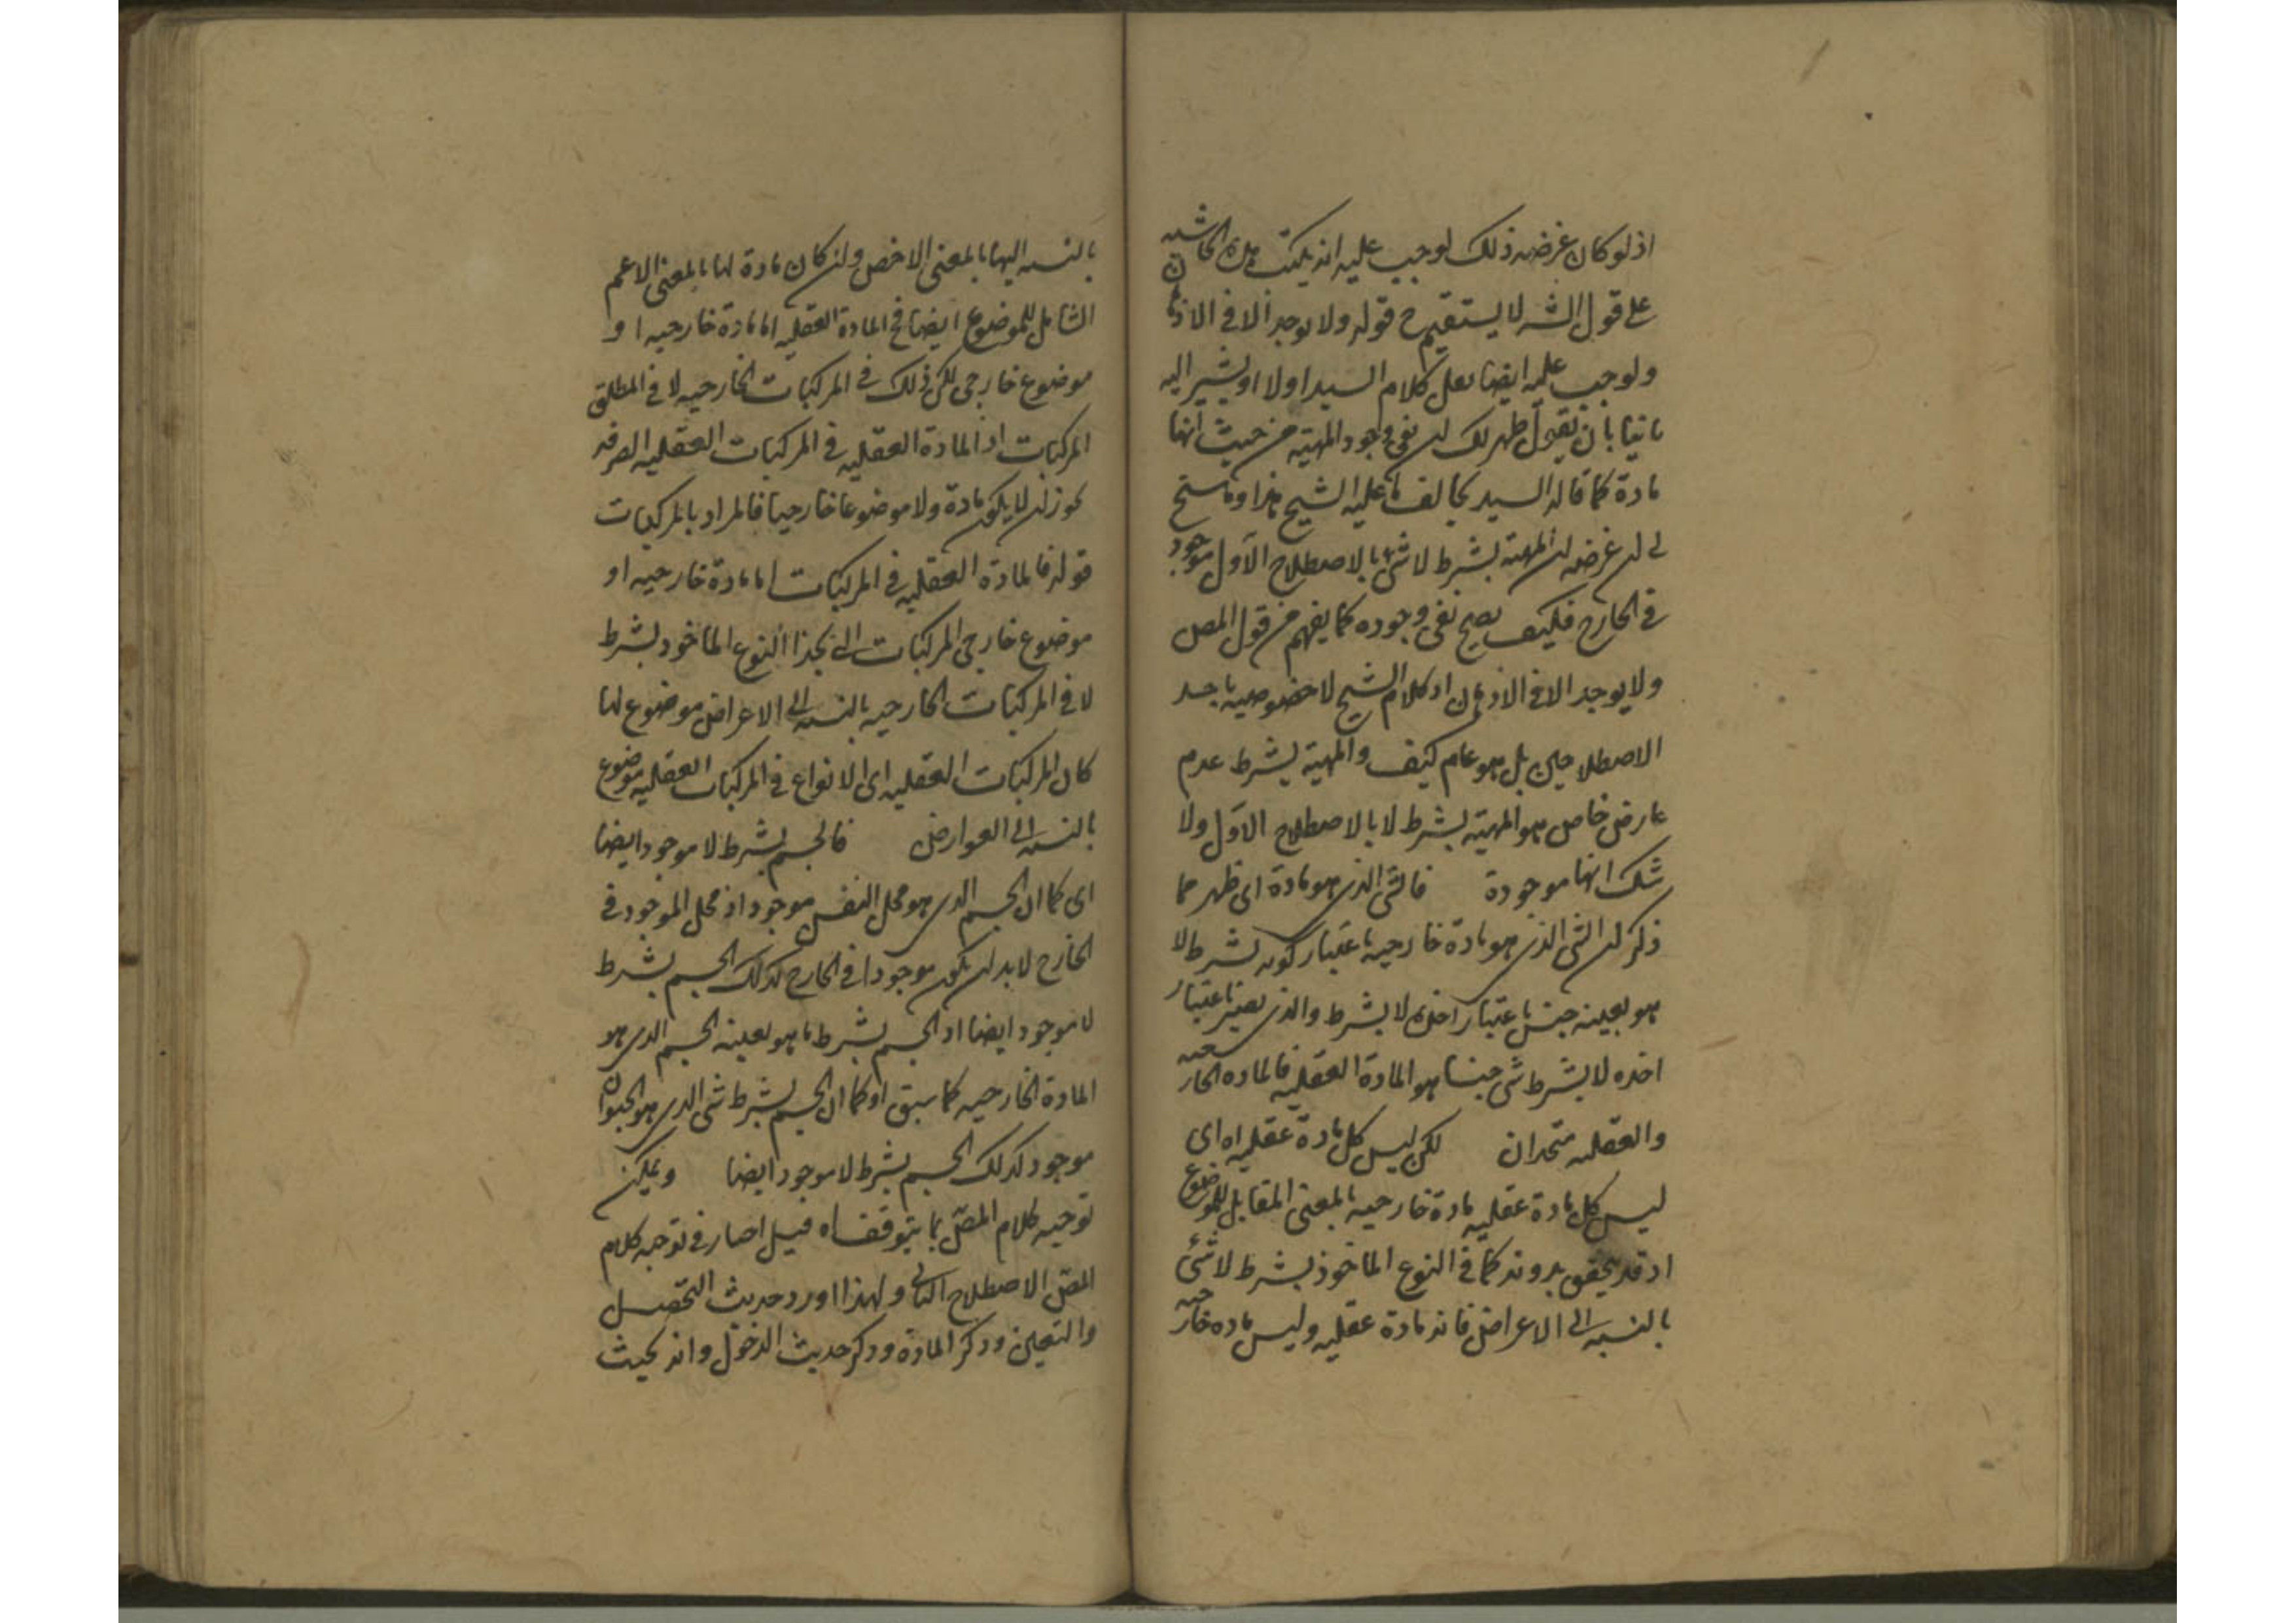 اذ لو كان غرضه ذلك لوجب عليه ان يكتب هذه الحاشيه
على قول الشه لا يستقيم ح قوله ولا يوجد الا فى الاذهان
ولوجب عليه ايضا نقل كلام السيد اولا او يشير اليه
ثانيا بان يقول ظهر لك ان نفى وجود المهية من حيث انها
مادة كما قاله السيد يخالف ما عليه الشيخ هذا وما سنح
لى ان غرضه ان المهية بشرط لا شئ بالاصطلاح الاول موجود
فى الخارج فكيف يصح نفى وجوده كما يفهم من قول المص
ولا يوجد الا فى الاذهان اذ كلام الشيخ لا خصوصية باحد
الاصطلاحين بل هو عام كيف والمهية بشرط عدم
عارض خاص هو المهية بشرط لا بالاصطلاح الاول ولا
شك انها موجودة فالشئ الذى هو مادة اى ظهر مما
ذكر ان الشئ الذى هو مادة خارجية باعتبار كونه بشرط لا
هو بعينه جنس باعتبار اخذه لا بشرط والذى يصير باعتبار
اخذه لا بشرط شئ جنسا هو المادة العقلية فالماده الخار
والعقليه متحدان لكن ليس كل مادة عقليه اه اى
ليس كل مادة عقليه مادة خارجيه بالمعنى المقابل للموضوع
اذ قد يتحقق بدونه كما فى النوع الماخوذ بشرط لا شئ
بالنسبه الى الاعراض فانه مادة عقليه وليس ماده خارجيه
بالنسبه اليها بالمعنى الاخص وان كان مادة لها بالمعنى الاعم
الشامل للموضوع ايضا فالمادة العقليه اما مادة خارجيه او
موضوع خارجى لكن ذلك فى المركبات الخارجيه لا فى المطلق
المركبات اذ المادة العقليه فى المركبات العقليه الصرفه
يجوز ان لا يكون مادة ولا موضوعا خارجيا فالمراد بالمركبات
قوله فالمادة العقليه فى المركبات اما مادة خارجيه او
موضوع خارجى المركبات الخ كذا النوع الماخوذ بشرط
لا فى المركبات الخارجيه بالنسبه الى الاعراض موضوع لها
كان المركبات العقليه اى الانواع فى المركبات العقليه موضوع
بالنسبه الى العوارض فالجسم بشرط لا موجود ايضا
اى كما ان الجسم الذى هو محل النفس موجود اذ محل الموجود فى
الخارج لا بد ان يكون موجودا فى الخارج كذلك الجسم بشرط
لا موجود ايضا اذ الجسم بشرط لا هو بعينه الجسم الذى هو
المادة الخارجيه كما سبق او كما ان الجسم بشرط شئ الذى هو الحيوان
موجود كذلك الجسم بشرط لا موجود ايضا ويمكن
توجيه كلام المص بما يتوقف اه فيه اختار فى توجيه كلام
المص الاصطلاح الثانى ولهذا اورد حديث التحصيل
والتعين وذكر المادة وذكر حديث الدخول وانه بحيث